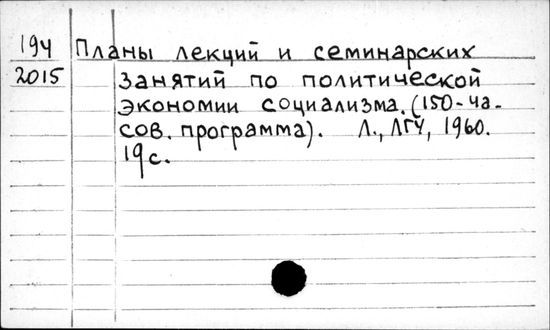 194 Планы лекций и семинарских
2015 занятий по политической
экономии социализма. (150-ча-
сов. программа). Л., ЛГУ, 1960.
19с.